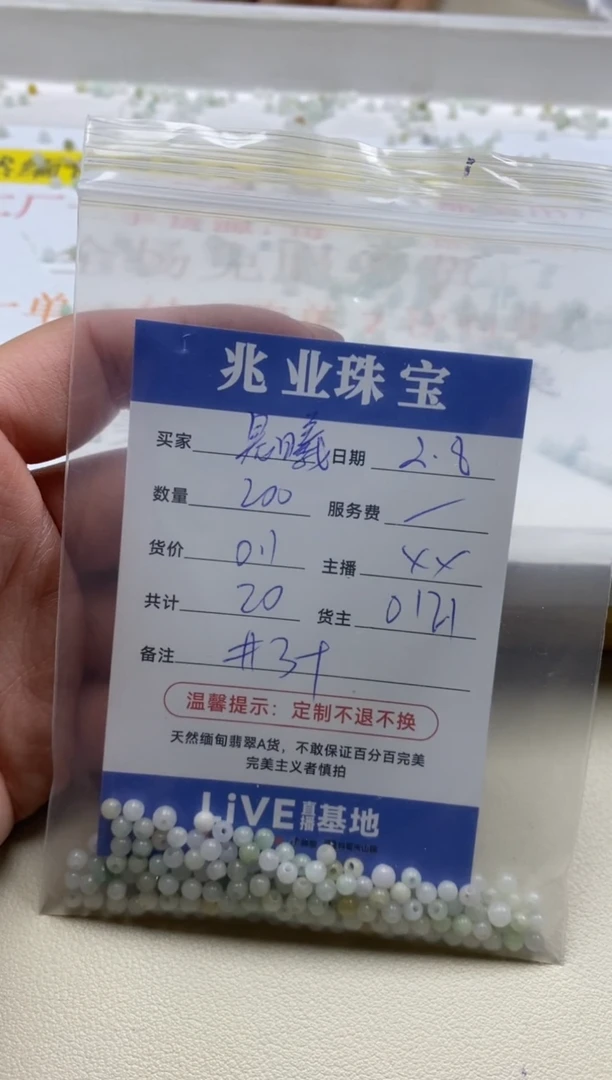 兆业珠宝
买家 晨曦 日期 2.8
数量 200 服务费 /
货价 0.1 主播 XX
共计 20 货主 0121
备注 #3十
温馨提示：定制不退不换
天然缅甸翡翠A货，不敢保证百分百完美
完美主义者慎拍
LiVE直播基地